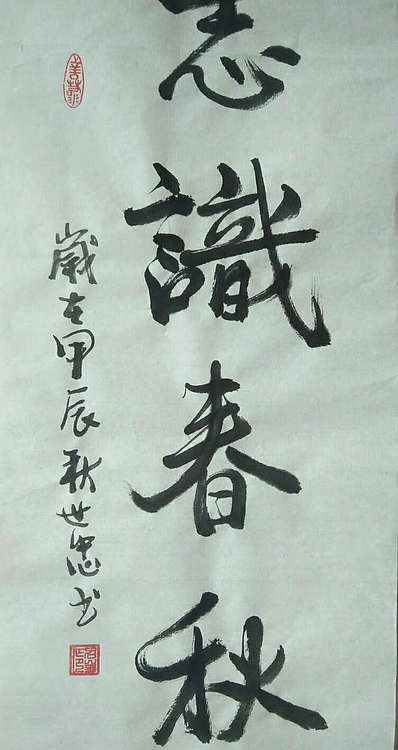 志識春秋
歲在甲辰秋世忠书